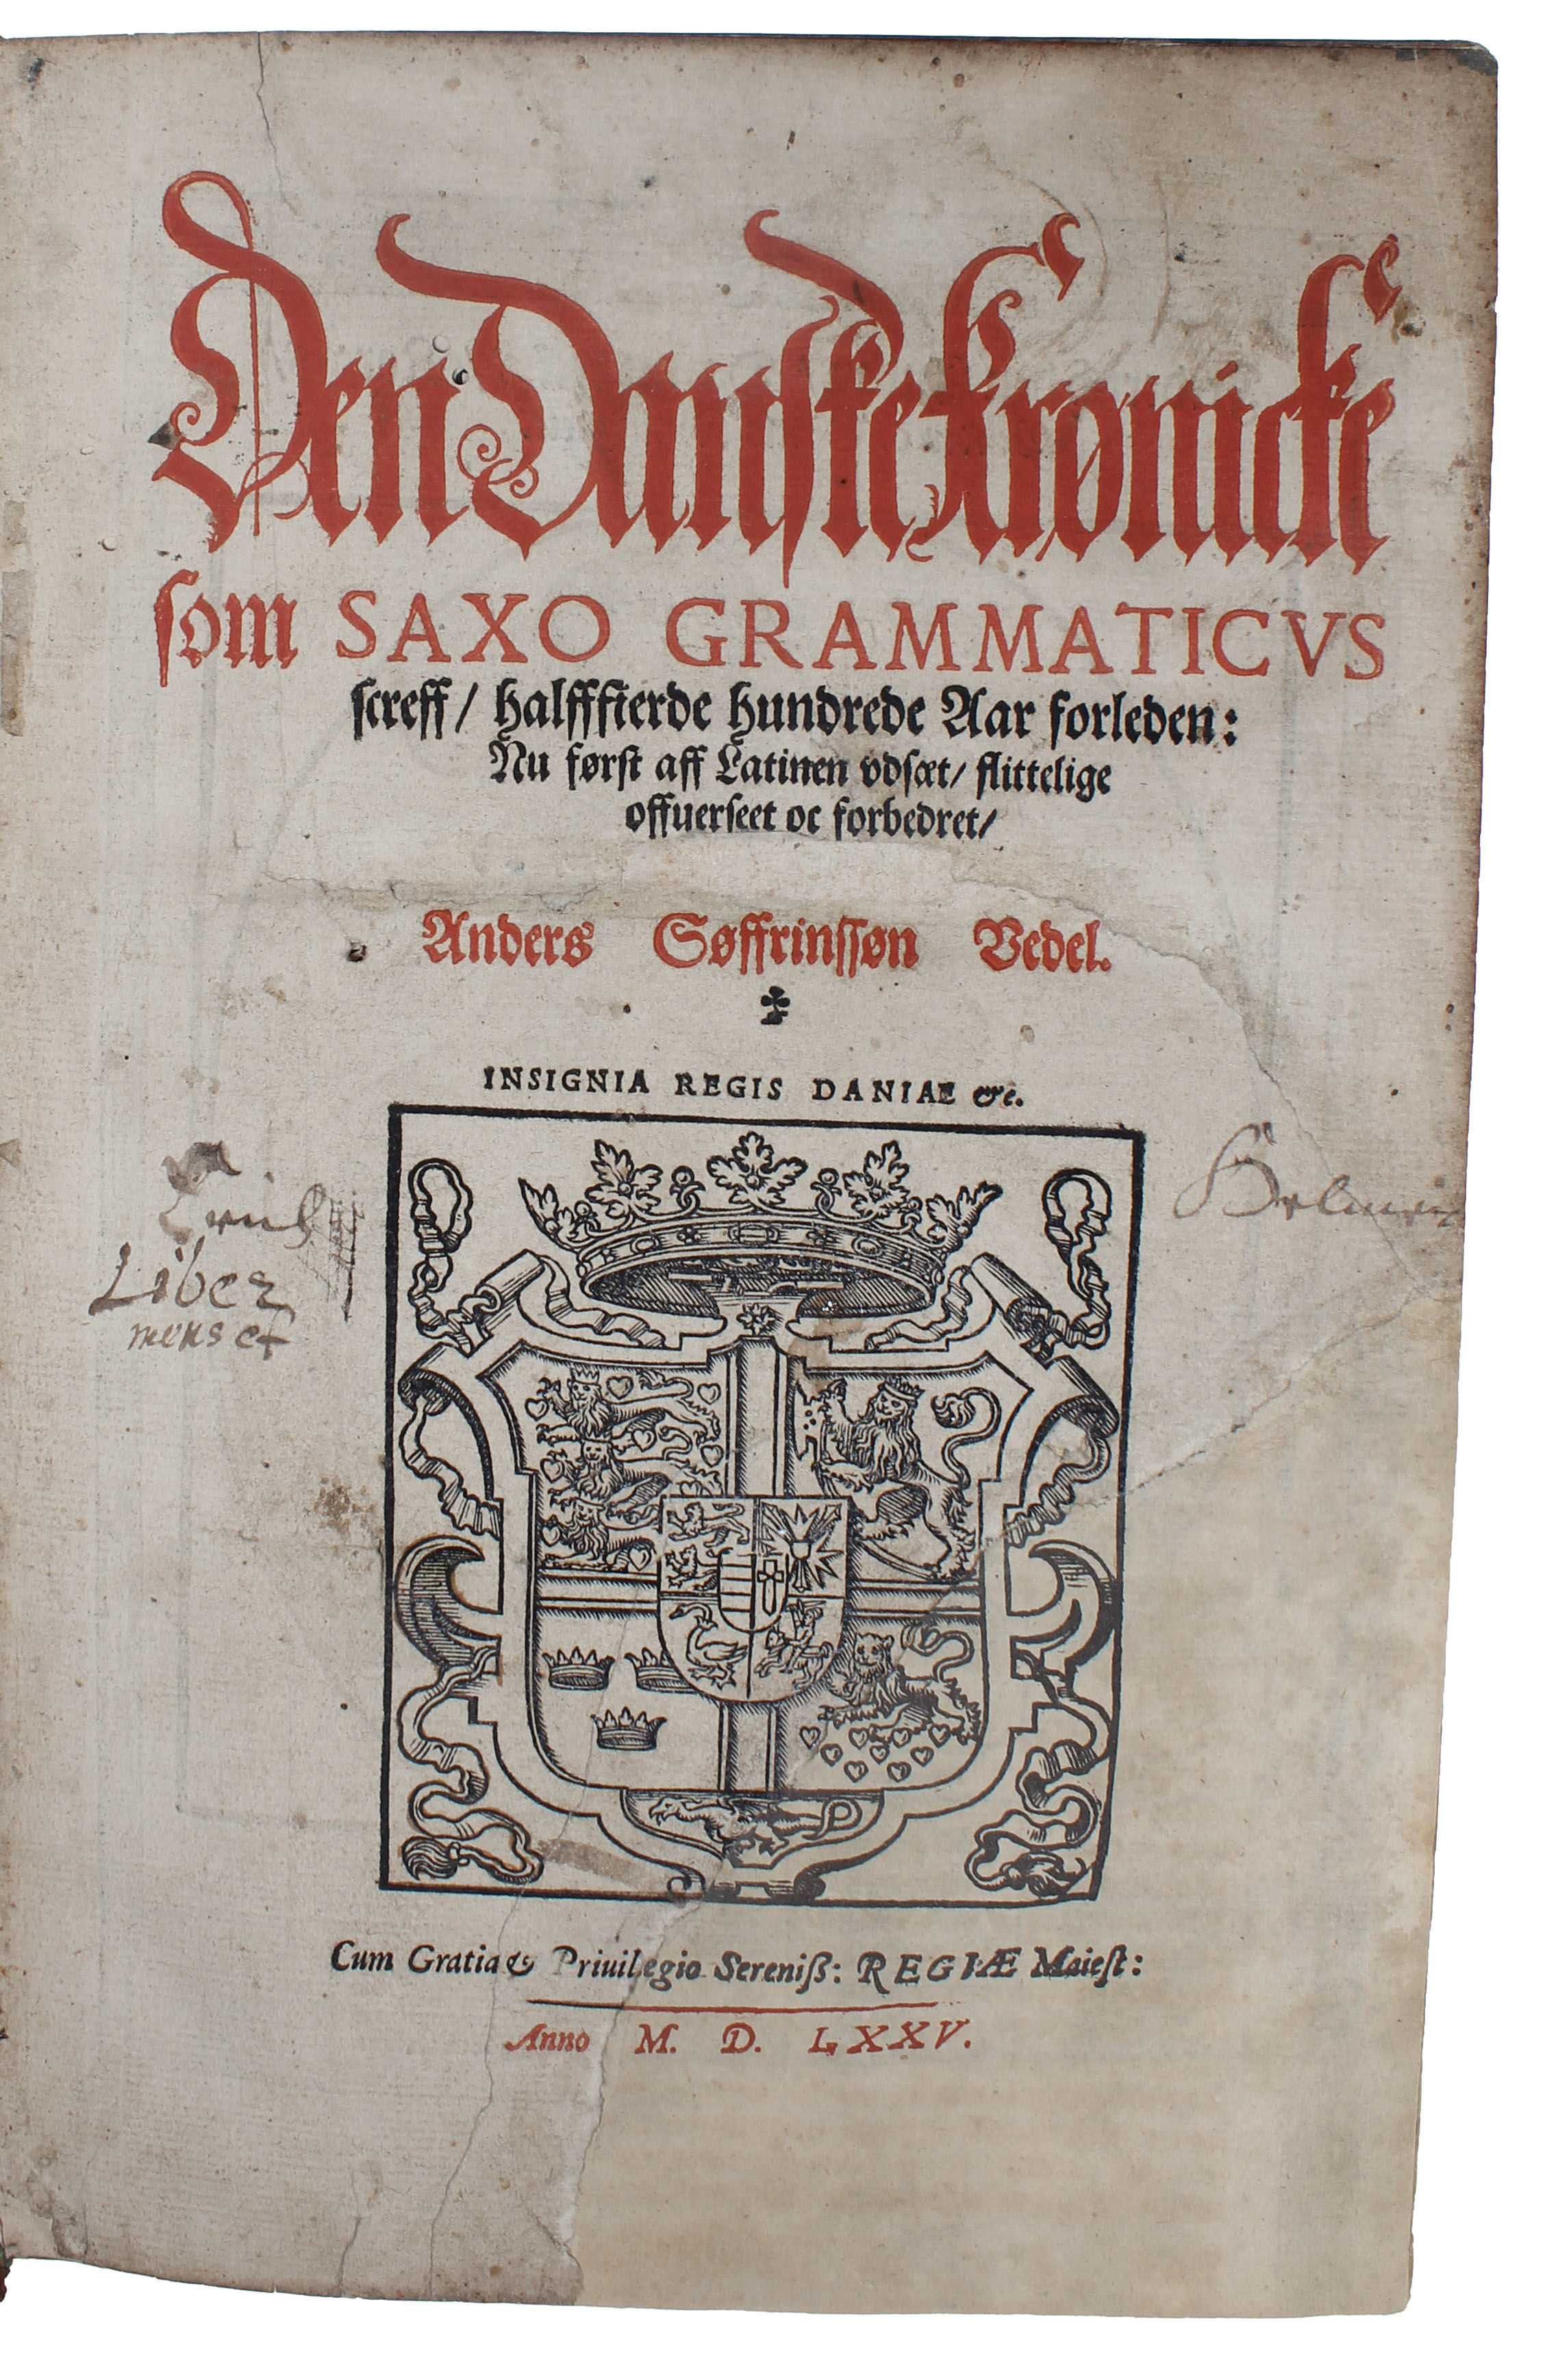 Den Danske Krønicke
som SAXO GRAMMATICVS
screff/ halffierde hundrede Aar forleden:
Nu først aff Latinen vdsæt/ flittelige
offuerseet oc forbedret/
Anders Søffrinssøn Vedel.
INSIGNIA REGIS DANIAE &c.
Liber
meus est
Cum Gratia & Priuilegio Sereniß: REGIÆ Maiest:
Anno M. D. LXXV.